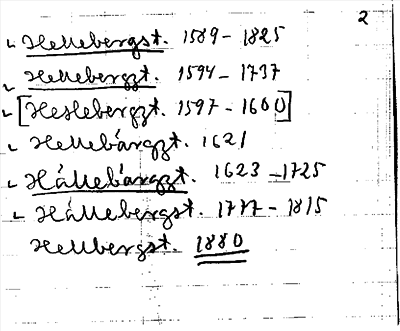 2
Hellebergst. 1589 - 1825
Hellebergzt. 1594 - 1737
[Heslebergzt. 1597 - 1600]
Hellebårgzt. 1621
Hållebårgzt. 1623 - 1725
Hållebergst. 1777 - 1815
Hellbergst. 1880